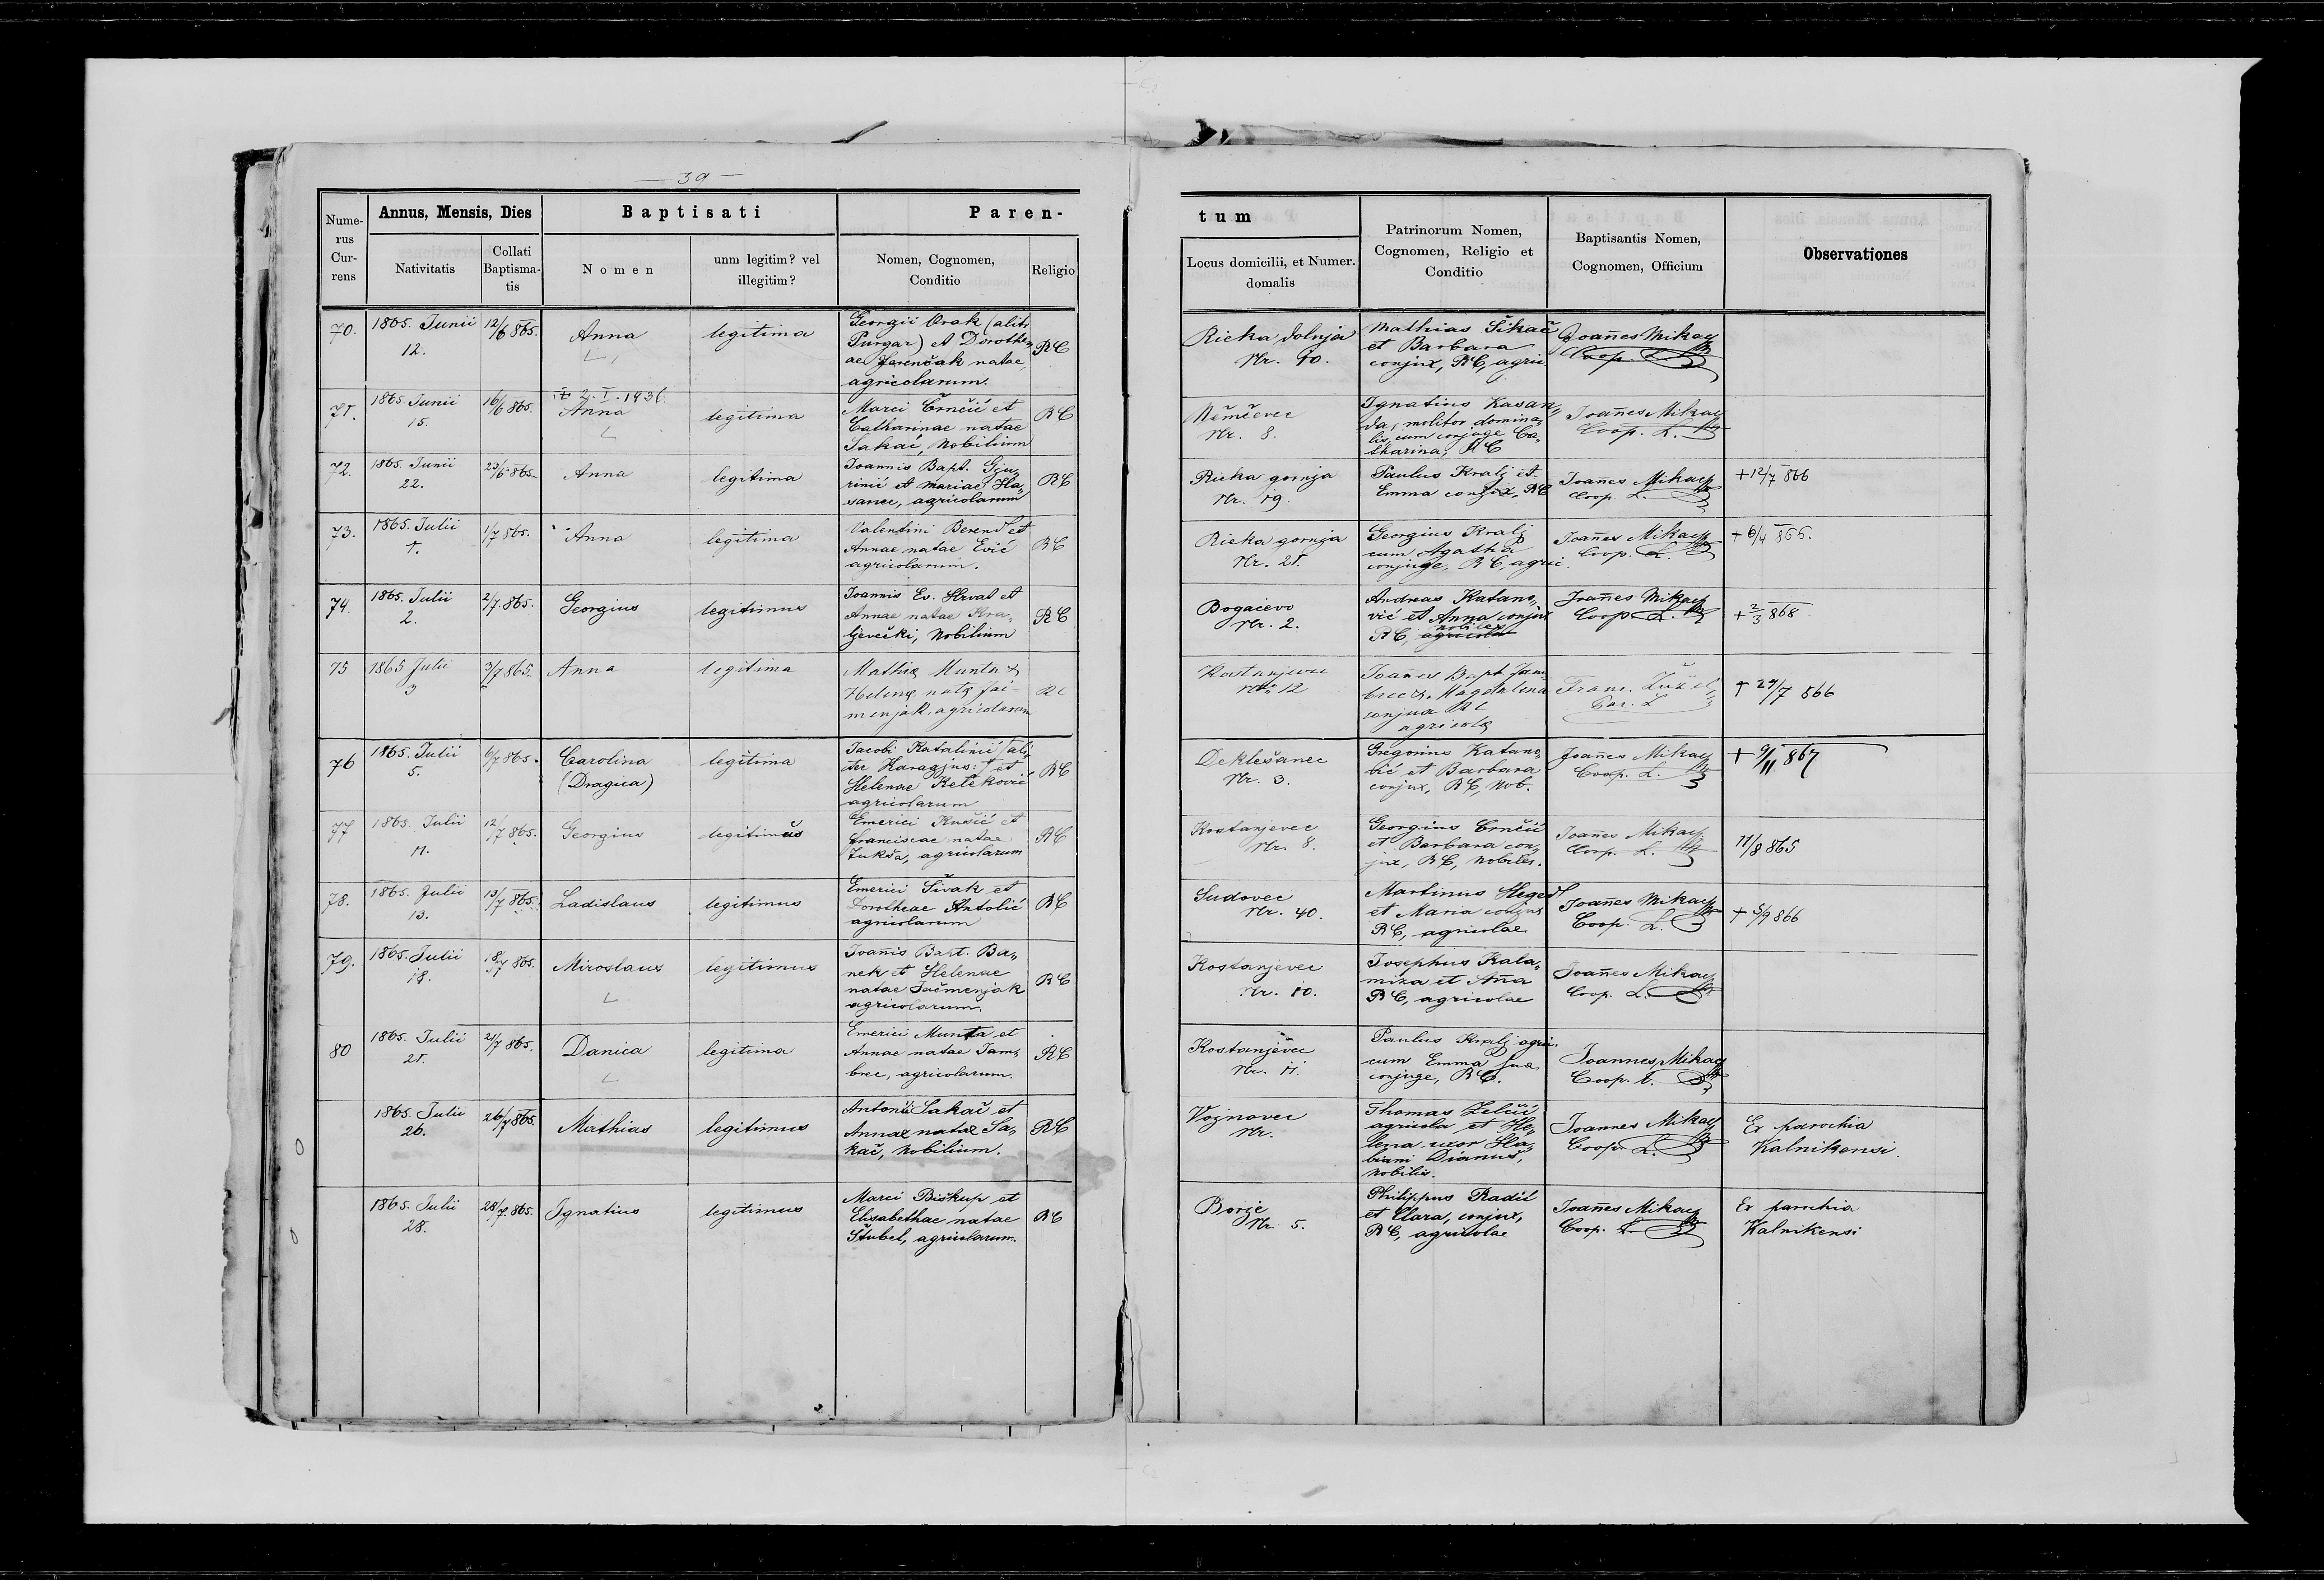 — 39 —
Nume-
rus
Cur-
rens
Annus, Mensis, Dies
Nativitatis
Collati
Baptisma-
tis
Baptisati
Nomen
unm legitim? vel
illegitim?
Paren-
Nomen, Cognomen,
Conditio
Religio
tum
Locus domicilii, et Numer.
domalis
Patrinorum Nomen,
Cognomen, Religio et
Conditio
Baptisantis Nomen,
Cognomen, Officium
Observationes
70.
1865. Junii
12.
12/6 865.
Anna
legitima
Georgii Orak (alit.
Purgar) et Dorothe„
ae Jarenčak natae,
agricolarum.
RC
Rieka dolnja
Nr. 40.
Mathias Šikač
et Barbara
conjux, RC, agric
Joañes Mikacz
Coop. L.
71.
1865. Junii
15.
16/6 865.
2. I. 193
Anna
legitima
Marci Črnčić et
Catharinae natae
Sakač, Nobilium
RC
Němčevec
Nr. 8.
Ignatius Kasan„
da, molitor domina„
lis, cum conjuge Ca„
tharina, RC
Joañes Mikacz
Coop. L.
72.
1865. Junii
22.
23/6 865.
Anna
legitima
Joannis Bapt. Gju„
rinić et Mariae Ha„
sanec, agricolarum
RC
Rieka gornja
Nr. 19.
Paulus Kralj et
Emma conjux, RC
Joañes Mikacz
Coop. L.
+ 12/7 866
73.
1865. Julii
1.
1/7 865.
Anna
legitima
Valentini Berend et
Annae natae Ević
agricolarum.
RC
Rieka gornja
Nr. 21.
Georgius Kralj
cum Agatha
conjuge, RC, agric.
Joañes Mikacz
Coop. L.
+ 6/4 866.
74.
1865. Julii
2.
2/7 865.
Georgius
legitimus
Joannis Ev. Hrvat et
Annae natae Kra„
ljevečki, Nobilium
RC
Bogačevo
Nr. 2.
Andreas Katano„
vić et Anna conjux
nobiles
RC, agricolae
Joañes Mikacz
Coop. L.
+ 2/3 868
75
1865 Julii
3
3/7 865.
Anna
legitima
Mathiæ Munta &
Helenæ natæ Jai-
menjak, agricolarum
RC
Kostanjevec
Nr. 12
Joañes Bapt Jam
brec & Magdalena
conjux RC
agricolæ
Franc. Žužel
Par. L
+ 24/7 866
76
1865. Julii
5.
6/7 865.
Carolina
(Dragica)
legitima
Jacobi Katalinić (ali„
ter Karagjus:) et
Helenae Keteković
agricolarum
RC
Deklešanec
Nr. 3.
Gregorius Katano„
vić et Barbara
conjux, RC, Nob.
Joañes Mikacz
Coop. L.
+ 9/11 867
77
1865. Julii
11.
12/7 865.
Georgius
legitimus
Emerici Kušić et
Franciscae natae
Jukša, agricolarum
RC
Kostanjevec
Nr. 8.
Georgius Črnčić
et Barbara con„
jux, RC, Nobiles.
Joañes Mikacz
Coop. L.
11/8 865
78.
1865. Julii
13.
13/7 865.
Ladislaus
legitimus
Emerici Šivak et
Dorotheae Antolić
agricolarum
RC
Sudovec
Nr. 40.
Martinus Heged
et Maria conjux
RC, agricolae
Joañes Mikacz
Coop. L.
+ 5/9 866
79.
1865. Julii
18.
18/7 865.
Miroslaus
legitimus
Joañis Bapt. Ba„
nek et Helenae
natae Jačmenjak
agricolarum.
RC
Kostanjevec
Nr. 10.
Josephus Kala„
miza et Aña
RC, agricolae
Joañes Mikacz
Coop. L.
80
1865. Julii
21.
21/7 865.
Danica
legitima
Emerici Munta et
Annae natae Jam„
brec, agricolarum.
RC
Kostanjevec
Nr. 11.
Paulus Kralj agric.
cum Emma sua
conjuge, RC.
Joannes Mikacz
Coop. L.
1865. Julii
26.
26/7 865.
Mathias
legitimus
Antonii Sakač et
Annae natae Sa„
kač, Nobilium.
RC
Vojnovec
Nr.
Thomas Zelčić
agricola et He„
lena uxor
Dianuš,
Nobilis.
Joannes Mikacz
Coop. L.
Ex parochia
Kalnikensi.
1865. Julii
28.
28/7 865.
Ignatius
legitimus
Marci Biškup et
Elisabethae natae
Štubel, agricolarum.
RC
Borje
Nr. 5.
Philippus Radić
et Clara, conjux,
RC, agricolae
Joañes Mikacz
Coop. L.
Ex parochia
Kalnikensi